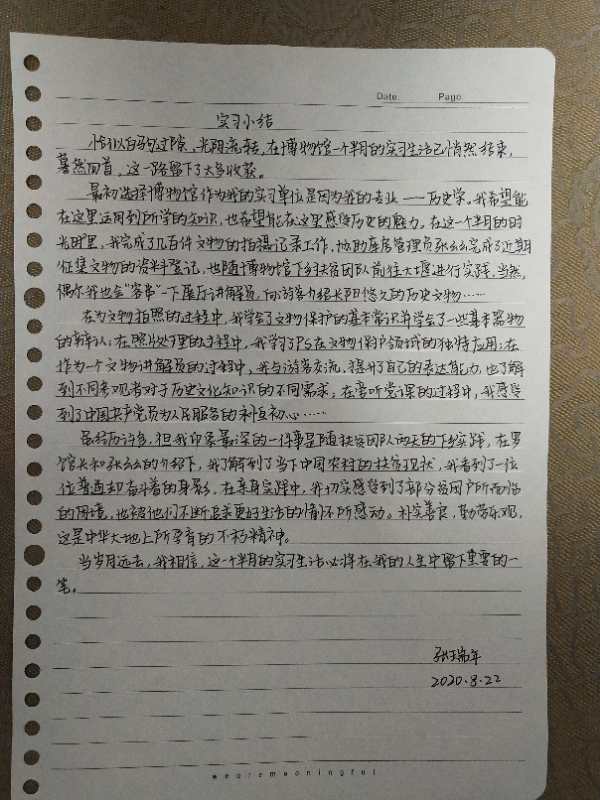 Date. Page.
实习小结
恰似白驹过隙，光阴流转，在博物馆一个半月的实习生活已悄然结束，
蓦然回首，这一路留下了太多收获。
最初选择博物馆作为我的实习单位是因为我的专业——历史学。我希望能
在这里运用到所学的知识，也希望能在这里感悟历史的魅力。在这一个半月的时
光里，我完成了几百件文物的拍摄记录工作，协助库房管理员张幺幺完成了近期
征集文物的资料登记，也随博物馆下乡扶贫团队前往大堰进行实践，当然，
偶尔我也会“客串”一下展厅讲解员，向游客介绍长阳悠久的历史文物……
在为文物拍照的过程中，我学会了文物保护的基本常识并学会了一些基本器物
的辨认；在照片处理的过程中，我学习了PS在文物保护领域的独特应用；在
作为一个文物讲解员的过程中，我与游客交流，提升了自己的表达能力，也了解
到不同参观者对于历史文化知识的不同需求；在旁听党课的过程中，我感受
到了中国共产党员为人民服务的初心……
虽经历许多，但我印象最深的一件事是随扶贫团队两天的下乡实践，在罗
馆长和张幺幺的介绍下，我了解到了当下中国农村的扶贫现状，我看到了一位
位普通却奋斗着的身影，在亲身实践中，我切实感受到了部分贫困户所面临
的困境，也被他们不断追求更好生活的情怀所感动。朴实善良，勤劳乐观，
这是中华大地上所孕育的不朽精神。
当岁月远去，我相信，这一个半月的实习生活必将在我的人生中留下重要的一
笔。
张瑞年
2020.8.22
wearemeaningful